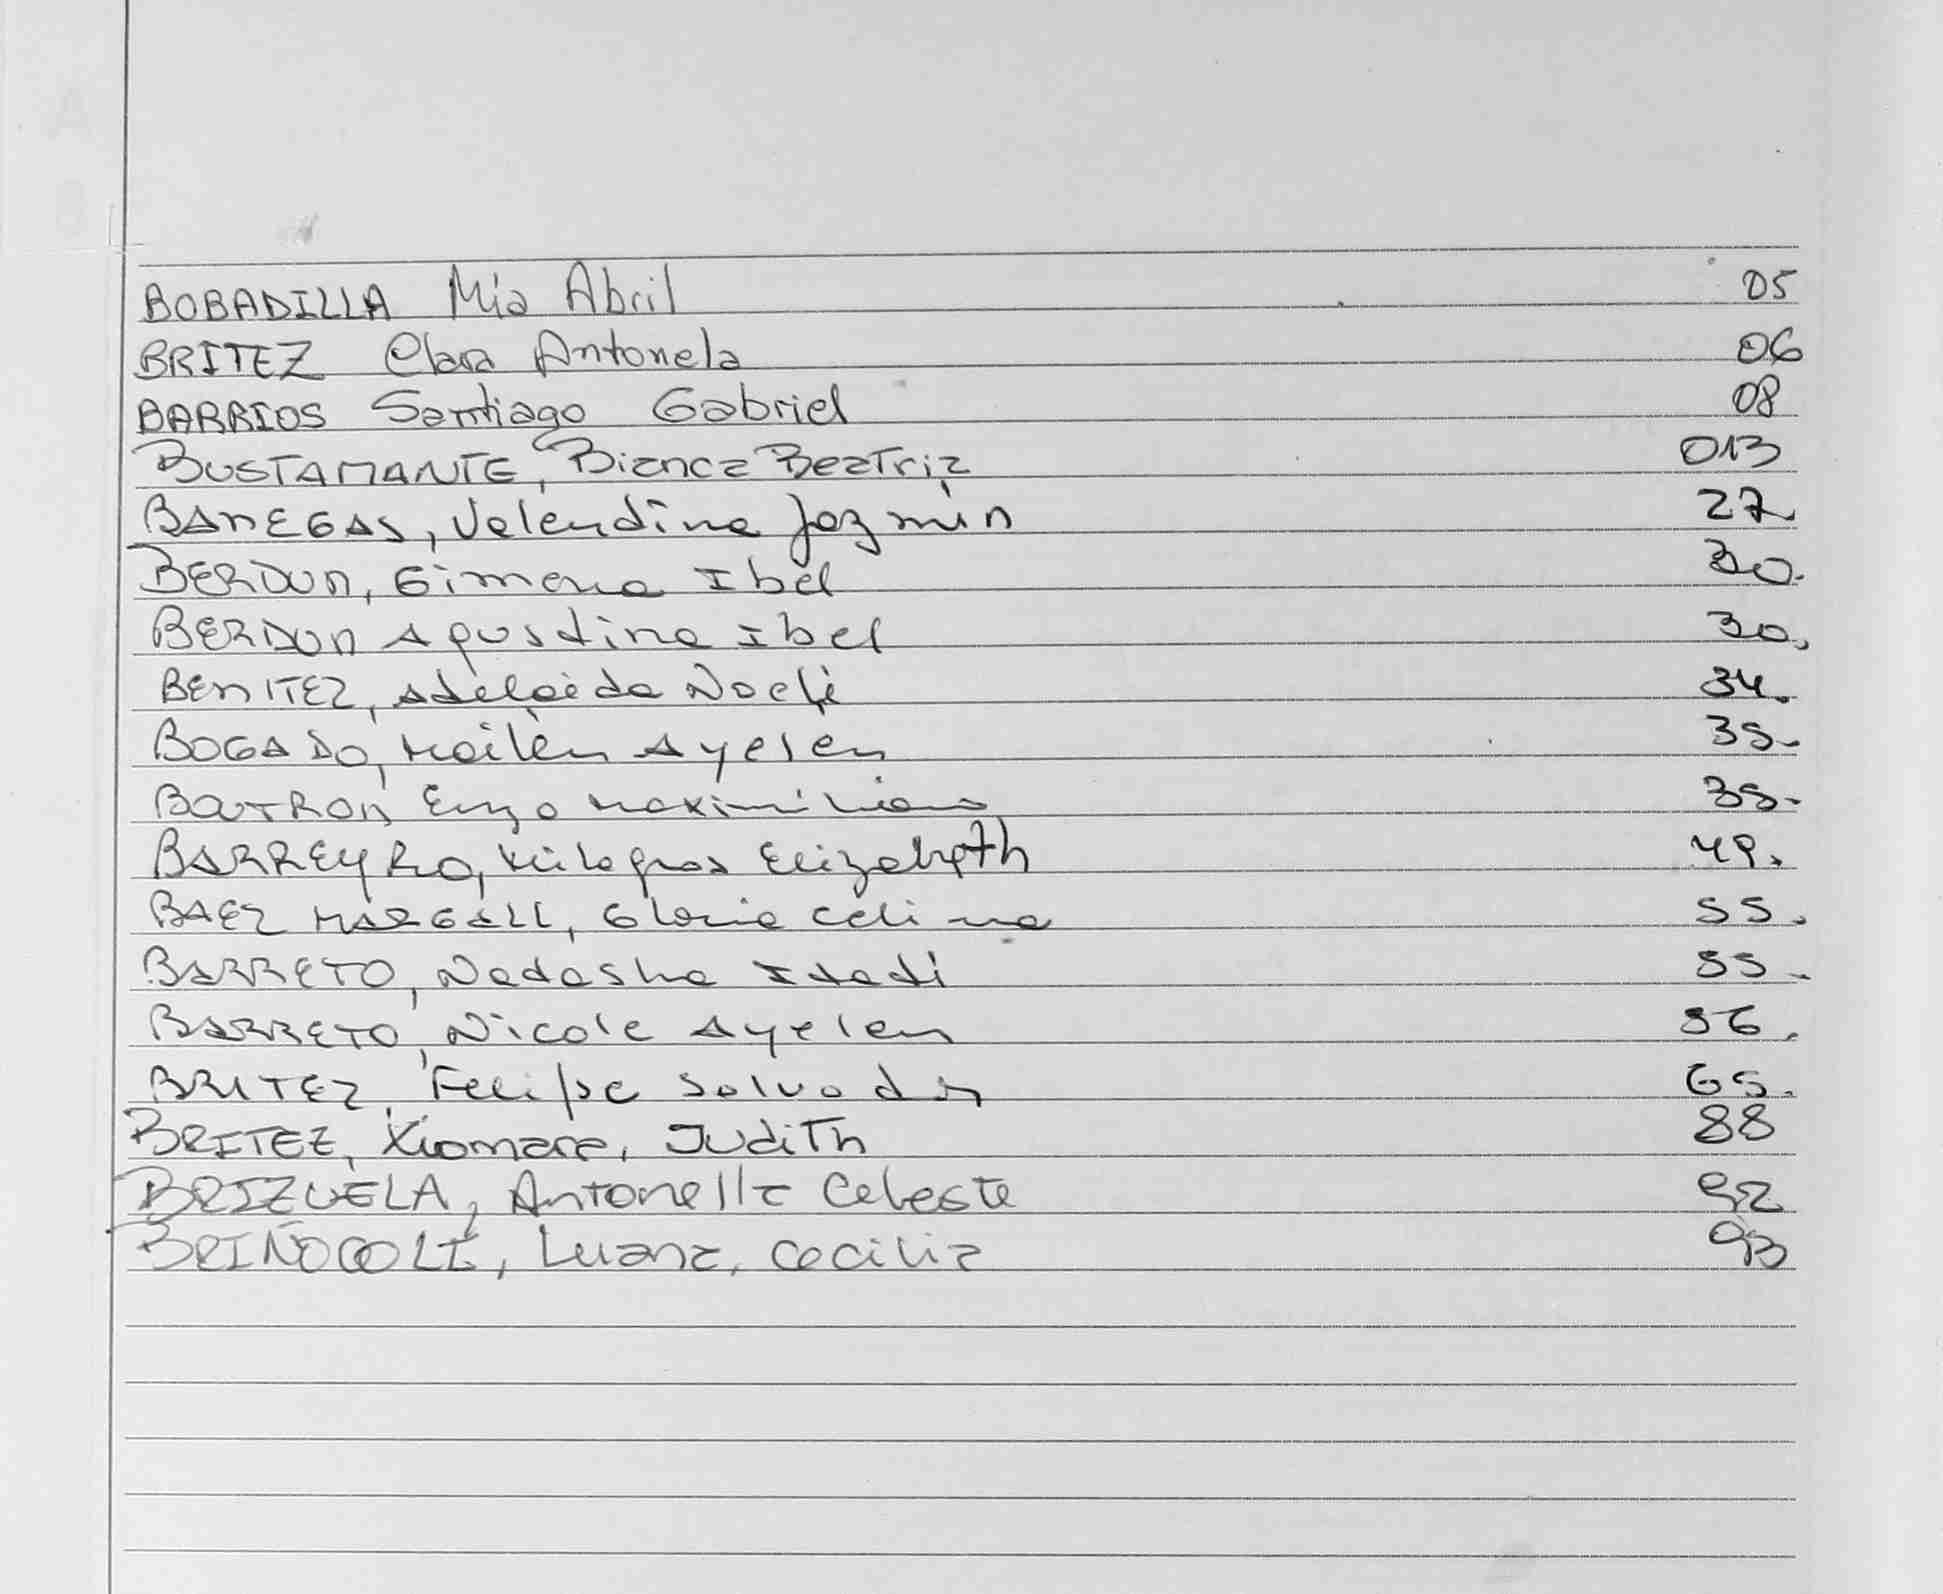 BOBADILLA Mia Abril 05
BRITEZ Clara Antonela 06
BARRIOS Santiago Gabriel 08
BUSTAMANTE, Bianca Beatriz 013
BANEGAS, Valentina Jazmin 27
BERDUN, Gimena Ibel 30.
BERDUN Agustina Ibel 30.
BENITEZ, Adelaida Noeli 34.
BOGADO, Mailén Ayelen 35.
BOUTRON Enzo Maximiliano 35.
BARREYRO, Milagros Elizabeth 49.
BAEZ MARGALL, Gloria Celina 55.
BARRETO, Natasha Itatí 55.
BARRETO, Nicole Ayelen 56.
BRITEZ, Felipe Salvador 65.
BRITEZ, Xiomara, Judith 88
BRIZUELA, Antonella Celeste 92
BRIÑOCOLI, Luana, Cecilia 93